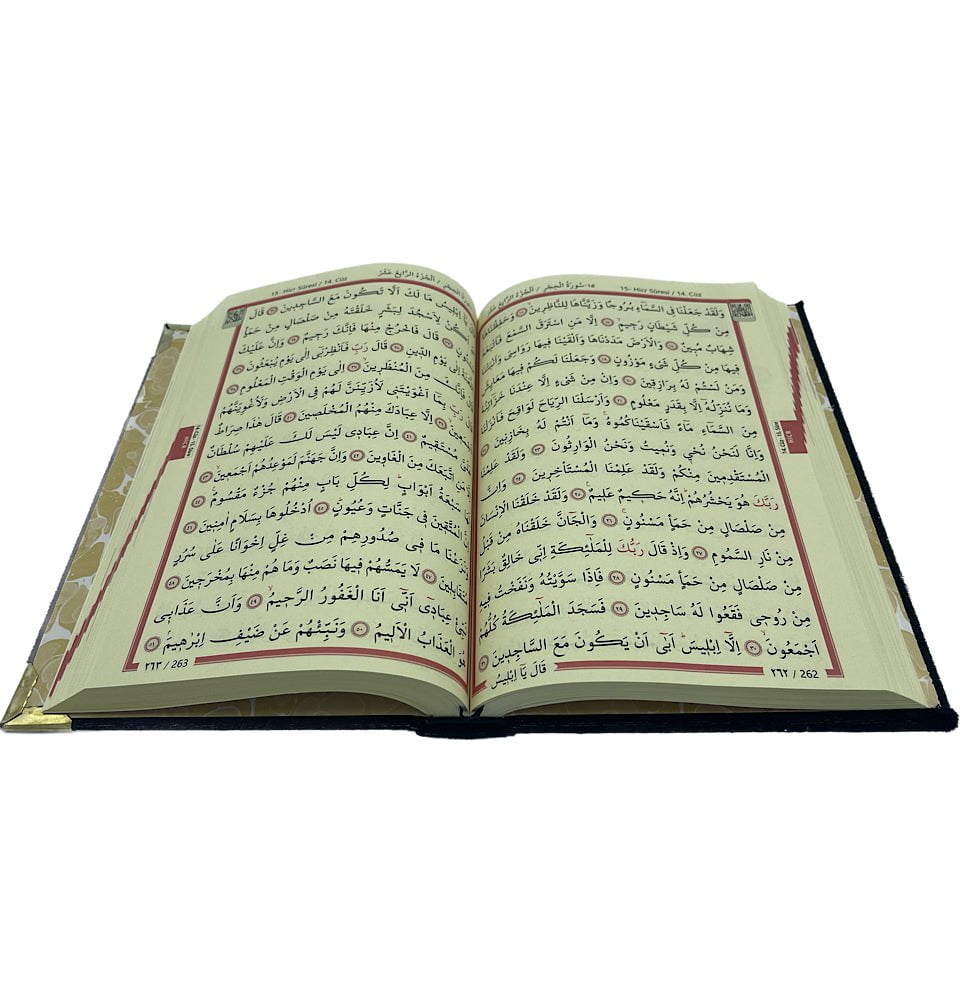 15- Hicr Sûresi / 14. Cüz
١٥-سُورَةُ الْحِجْرِ / اَلْجُزْءُ الرَّابِعَ عَشَرَ
وَلَقَدْ جَعَلْنَا فِي السَّمَٓاءِ بُرُوجًا وَزَيَّنَّاهَا لِلنَّاظِرٖينَۙ ﴿١٦﴾
مِنْ كُلِّ شَيْطَانٍ رَجٖيمٍۙ ﴿١٧﴾ اِلَّا مَنِ اسْتَرَقَ السَّمْعَ
شِهَابٌ مُبٖينٌ ﴿١٨﴾ وَالْاَرْضَ مَدَدْنَاهَا وَاَلْقَيْنَا فٖيهَا رَوَاسِيَ
فٖيهَا مِنْ كُلِّ شَيْءٍ مَوْزُونٍ ﴿١٩﴾ وَجَعَلْنَا لَكُمْ فٖيهَا
وَمَنْ لَسْتُمْ لَهُ بِرَازِقٖينَ ﴿٢٠﴾ وَاِنْ مِنْ شَيْءٍ اِلَّا عِنْدَنَا
وَمَا نُنَزِّلُهُٓ اِلَّا بِقَدَرٍ مَعْلُومٍ ﴿٢١﴾ وَاَرْسَلْنَا الرِّيَاحَ لَوَاقِحَ
مِنَ السَّمَٓاءِ مَٓاءً فَاَسْقَيْنَاكُمُوهُۚ وَمَٓا اَنْتُمْ لَهُ بِخَازِنٖينَ ﴿٢٢﴾
وَاِنَّا لَنَحْنُ نُحْيٖ وَنُمٖيتُ وَنَحْنُ الْوَارِثُونَ ﴿٢٣﴾ وَلَقَدْ عَلِمْنَا
الْمُسْتَقْدِمٖينَ مِنْكُمْ وَلَقَدْ عَلِمْنَا الْمُسْتَأْخِرٖينَ ﴿٢٤﴾ وَاِنَّ
رَبَّكَ هُوَ يَحْشُرُهُمْۜ اِنَّهُ حَكٖيمٌ عَلٖيمٌ ﴿٢٥﴾ وَلَقَدْ خَلَقْنَا الْاِنْسَانَ
مِنْ صَلْصَالٍ مِنْ حَمَأٍ مَسْنُونٍۚ ﴿٢٦﴾ وَالْجَٓانَّ خَلَقْنَاهُ مِنْ قَبْلُ
مِنْ نَارِ السَّمُومِ ﴿٢٧﴾ وَاِذْ قَالَ رَبُّكَ لِلْمَلٰٓئِكَةِ اِنّٖي خَالِقٌ بَشَرًا
مِنْ صَلْصَالٍ مِنْ حَمَأٍ مَسْنُونٍ ﴿٢٨﴾ فَاِذَا سَوَّيْتُهُ وَنَفَخْتُ فٖيهِ
مِنْ رُوحٖي فَقَعُوا لَهُ سَاجِدٖينَ ﴿٢٩﴾ فَسَجَدَ الْمَلٰٓئِكَةُ كُلُّهُمْ
اَجْمَعُونَۙ ﴿٣٠﴾ اِلَّٓا اِبْلٖيسَۜ اَبٰٓى اَنْ يَكُونَ مَعَ السَّاجِدٖينَ ﴿٣١﴾
قَالَ يَٓا اِبْلٖيسُ
٢٦٢ / 262
HICR
15- Hicr Sûresi / 14. Cüz
سُورَةُ الْحِجْرِ / اَلْجُزْءُ الرَّابِعَ عَشَرَ
اِبْلٖيسُ مَا لَكَ اَلَّا تَكُونَ مَعَ السَّاجِدٖينَ ﴿٣٢﴾ قَالَ
لِاَسْجُدَ لِبَشَرٍ خَلَقْتَهُ مِنْ صَلْصَالٍ مِنْ حَمَأٍ
﴿٣٣﴾ قَالَ فَاخْرُجْ مِنْهَا فَاِنَّكَ رَجٖيمٌۙ ﴿٣٤﴾ وَاِنَّ عَلَيْكَ
اِلٰى يَوْمِ الدّٖينِ ﴿٣٥﴾ قَالَ رَبِّ فَاَنْظِرْنٖٓي اِلٰى يَوْمِ يُبْعَثُونَ ﴿٣٦﴾
فَاِنَّكَ مِنَ الْمُنْظَرٖينَۙ ﴿٣٧﴾ اِلٰى يَوْمِ الْوَقْتِ الْمَعْلُومِ ﴿٣٨﴾
رَبِّ بِمَٓا اَغْوَيْتَنٖي لَاُزَيِّنَنَّ لَهُمْ فِي الْاَرْضِ وَلَاُغْوِيَنَّهُمْ
﴿٣٩﴾ اِلَّا عِبَادَكَ مِنْهُمُ الْمُخْلَصٖينَ ﴿٤٠﴾ قَالَ هٰذَا صِرَاطٌ
مُسْتَقٖيمٌ ﴿٤١﴾ اِنَّ عِبَادٖي لَيْسَ لَكَ عَلَيْهِمْ سُلْطَانٌ
اتَّبَعَكَ مِنَ الْغَاوٖينَ ﴿٤٢﴾ وَاِنَّ جَهَنَّمَ لَمَوْعِدُهُمْ اَجْمَعٖينَۙ ﴿٤٣﴾
سَبْعَةُ اَبْوَابٍۜ لِكُلِّ بَابٍ مِنْهُمْ جُزْءٌ مَقْسُومٌ۟ ﴿٤٤﴾
الْمُتَّقٖينَ فٖي جَنَّاتٍ وَعُيُونٍۜ ﴿٤٥﴾ اُدْخُلُوهَا بِسَلَامٍ اٰمِنٖينَ ﴿٤٦﴾
وَنَزَعْنَا مَا فٖي صُدُورِهِمْ مِنْ غِلٍّ اِخْوَانًا عَلٰى سُرُرٍ
مُتَقَابِلٖينَ ﴿٤٧﴾ لَا يَمَسُّهُمْ فٖيهَا نَصَبٌ وَمَا هُمْ مِنْهَا بِمُخْرَجٖينَ ﴿٤٨﴾
عِبَادٖٓي اَنّٖٓي اَنَا الْغَفُورُ الرَّحٖيمُۙ ﴿٤٩﴾ وَاَنَّ عَذَابٖي
هُوَ الْعَذَابُ الْاَلٖيمُ ﴿٥٠﴾ وَنَبِّئْهُمْ عَنْ ضَيْفِ اِبْرٰهٖيمَۢ ﴿٥١﴾
٢٦٣ / 263